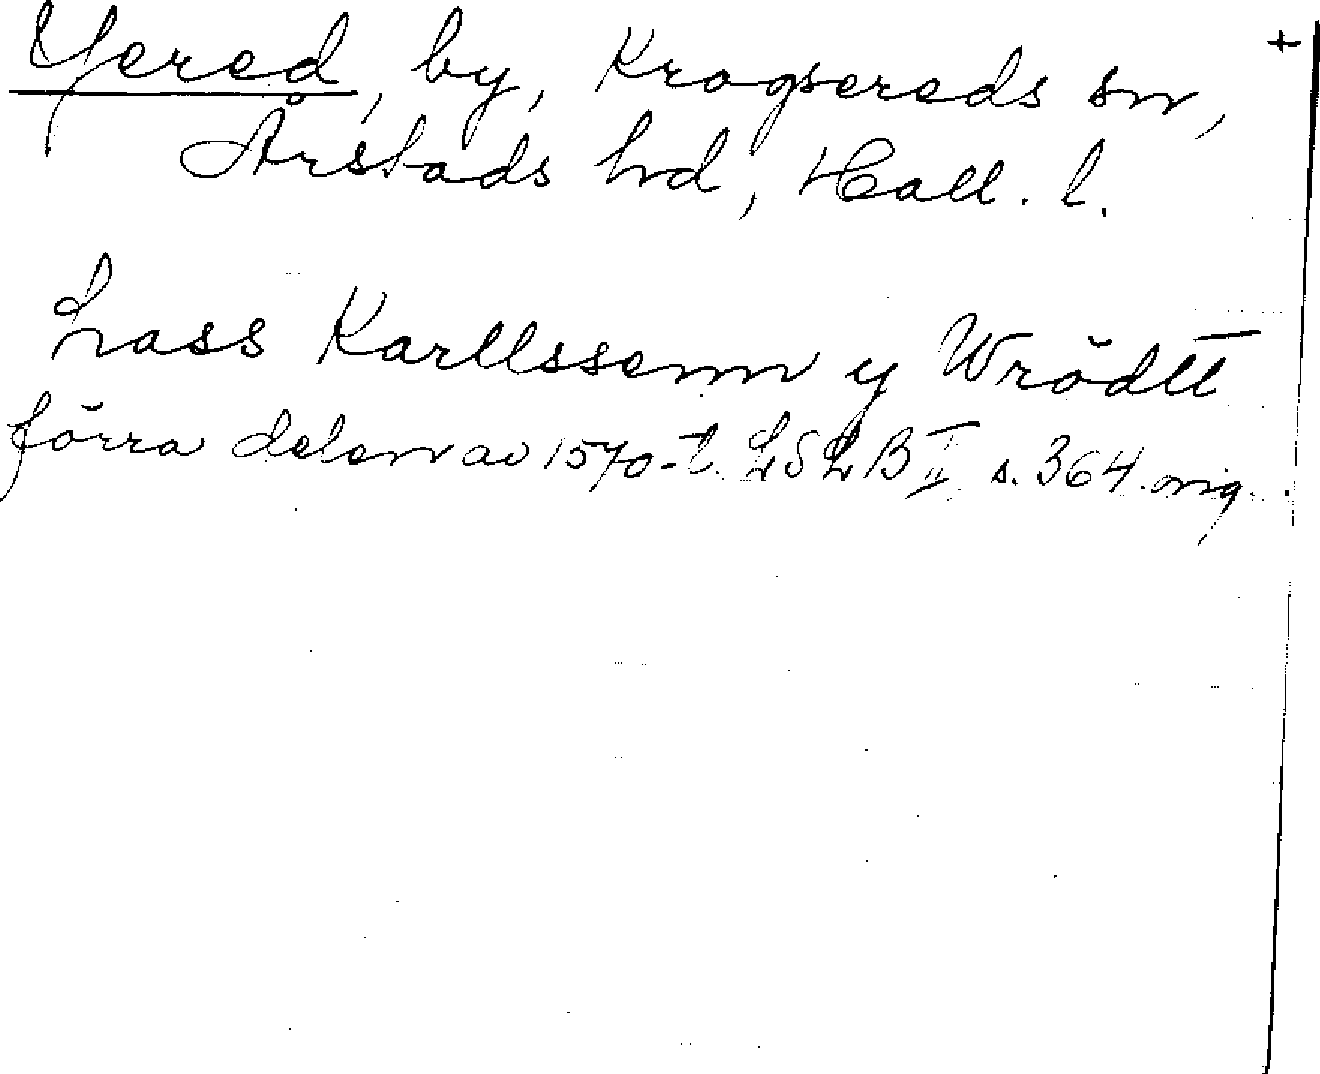 Yered, by, Krogsereds sn, +
Årstads hd, Hall. l.
Lass Karllssenn y Wrödtt
förra delen av 1570-t. LSLB II s. 364. orig.